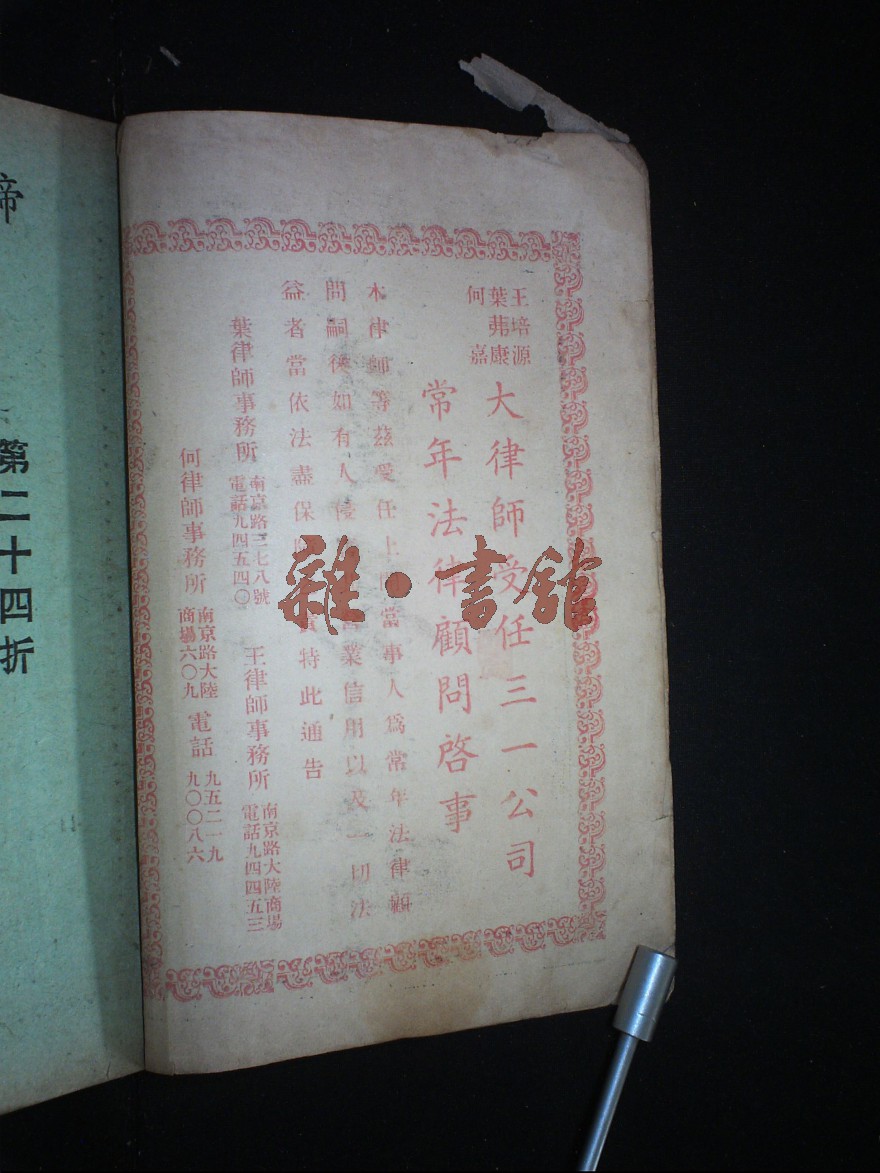 王培源
葉茀康
何嘉
大律師受任三一公司
常年法律顧問啓事
本律師等茲受任上開當事人為常年法律顧
問嗣後如有人侵 業信用以及一切法
益者當依法盡保 特此通告
葉律師事務所
南京路二七八號
電話九四五四〇
王律師事務所
南京路大陸商場
電話九四四五三
何律師事務所
南京路大陸
商場六〇九
電話
九五二一九
九〇〇八六
雜·書舘
第二十四折